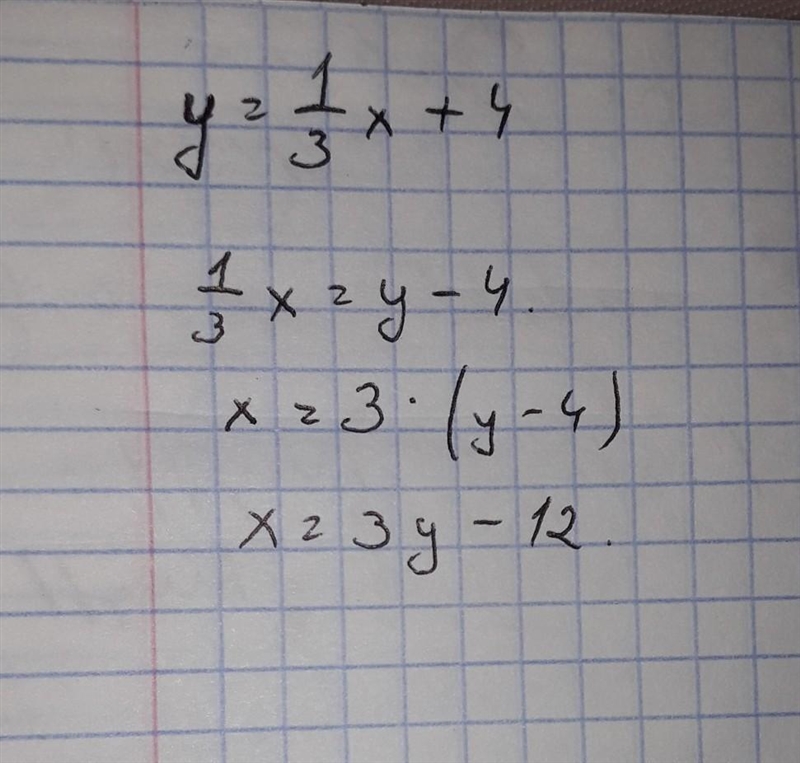 y = 1/3 x + 4
1/3 x = y - 4.
x = 3 · (y - 4)
x = 3y - 12.